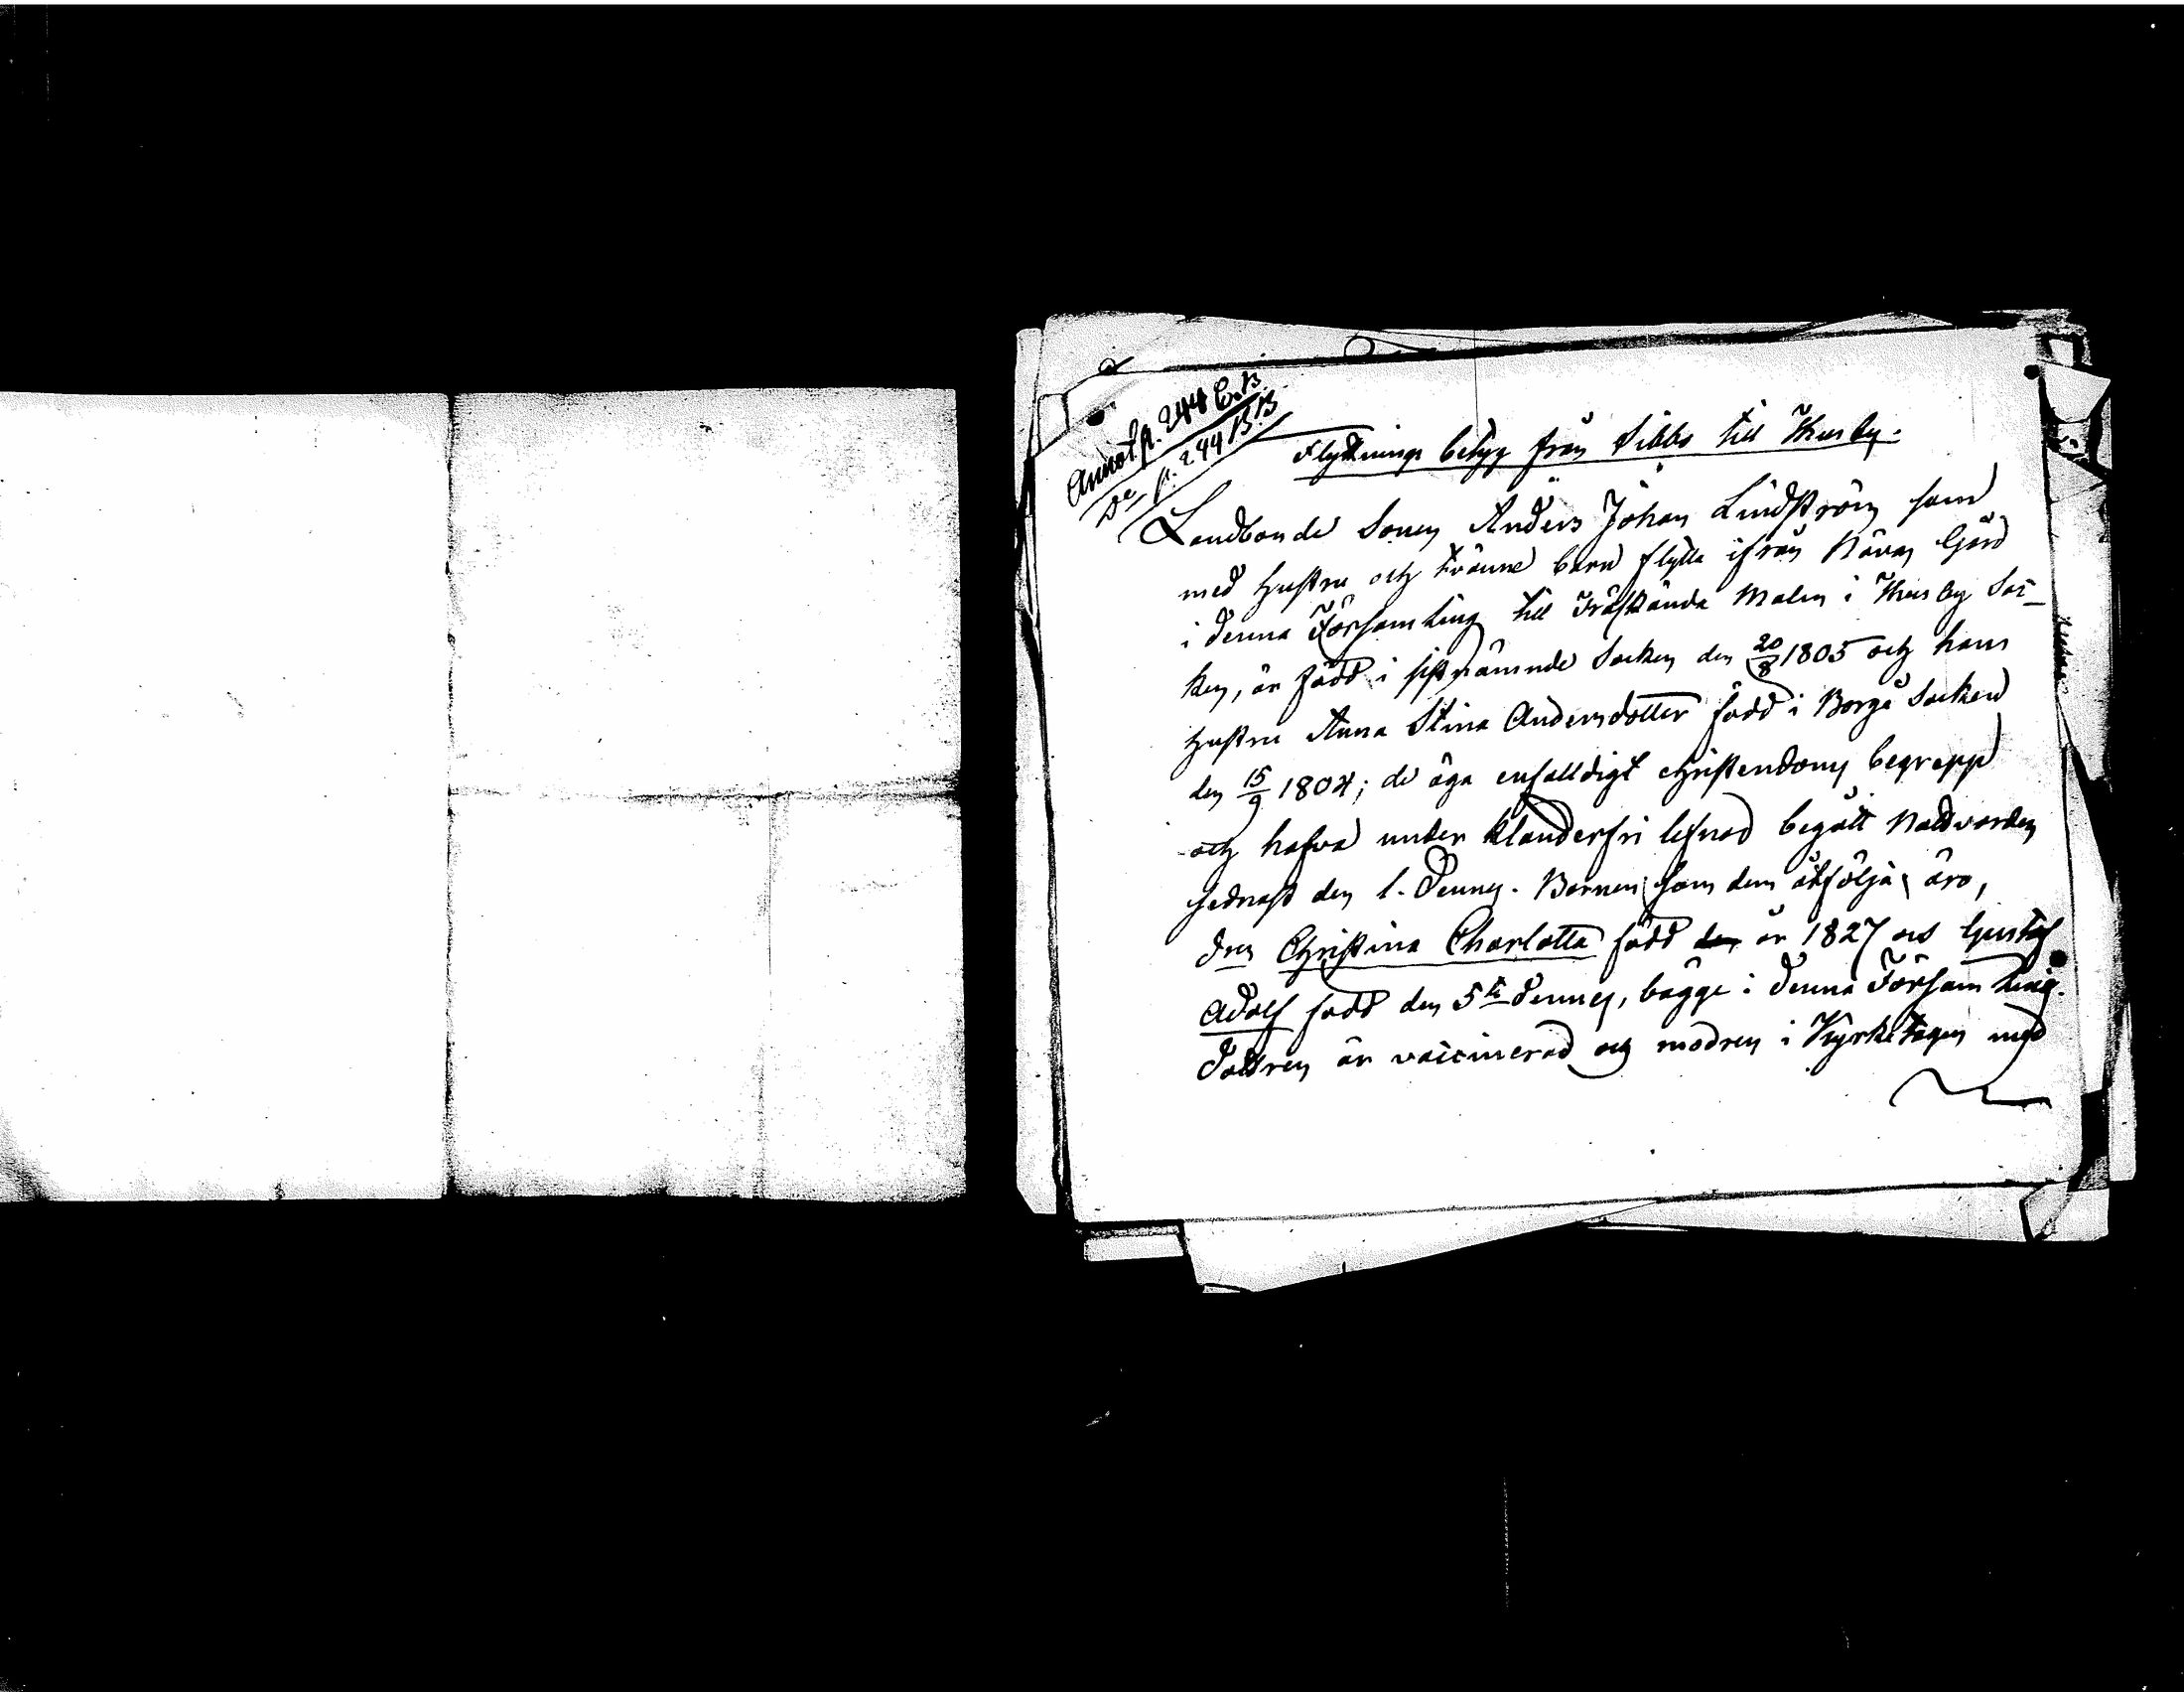 Annot. p. 244 C.B.
De p. 244 B.B
Flyttnings betyg från Sibbo till Thusby.
Landbonde Sonen Anders Johan Lindström som
med hustru och tvänne barn flytta ifrån Näван Gård
i denna Församling till Träskända Malm i Thusby Soc-
ken, är född i sistnämnde Socken den 20/8 1805 och hans
hustru Anna Stina Andersdotter född i Borgå Socken
den 15/9 1804; de äga enfalldigt christendoms begrepp
och hafva under klanderfri lefnad begått Nattvarden
sednast den 1. dennes. Barnen som dem åtfölja äro,
Christina Charlotta född den år 1827 och Gustaf
Adolf född den 5te dennes, bägge i denna Församling.
Dottren är vaccinerad och modren i Kyrko tagen med